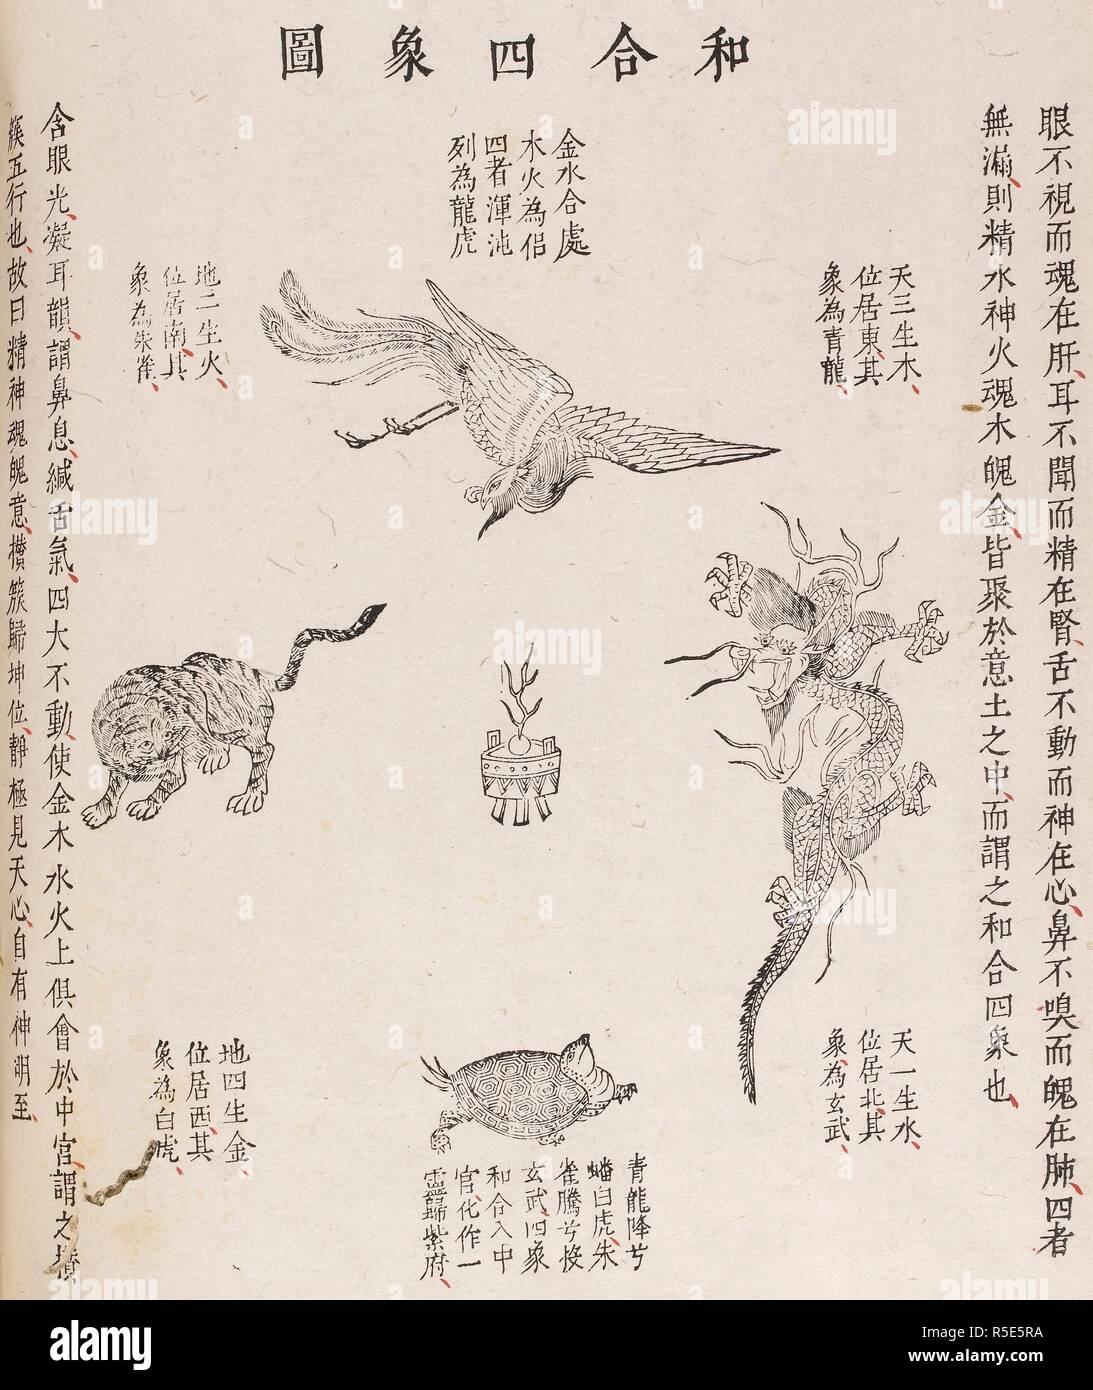 和合四象圖
眼不視而魂在肝耳不聞而精在腎舌不動而神在心鼻不嗅而魄在肺四者
無漏則精水神火魂木魄金皆聚於意土之中而謂之和合四象也
天三生木
位居東其
象為青龍
金水合處
木火為侶
四者渾沌
列為龍虎
地二生火
位居南其
象為朱雀
天一生水
位居北其
象為玄武
青龍降兮
蟠白虎朱
雀騰兮接
玄武四象
和合入中
宮化作一
靈歸紫府
地四生金
位居西其
象為白虎
含眼光凝耳韻調鼻息緘舌氣四大不動使金木水火土俱會於中宮謂之攢
簇五行也故曰精神魂魄意攢簇歸坤位靜極見天心自有神明至
alamy
a
alamy stock photo
R5E5RA
www.alamy.com